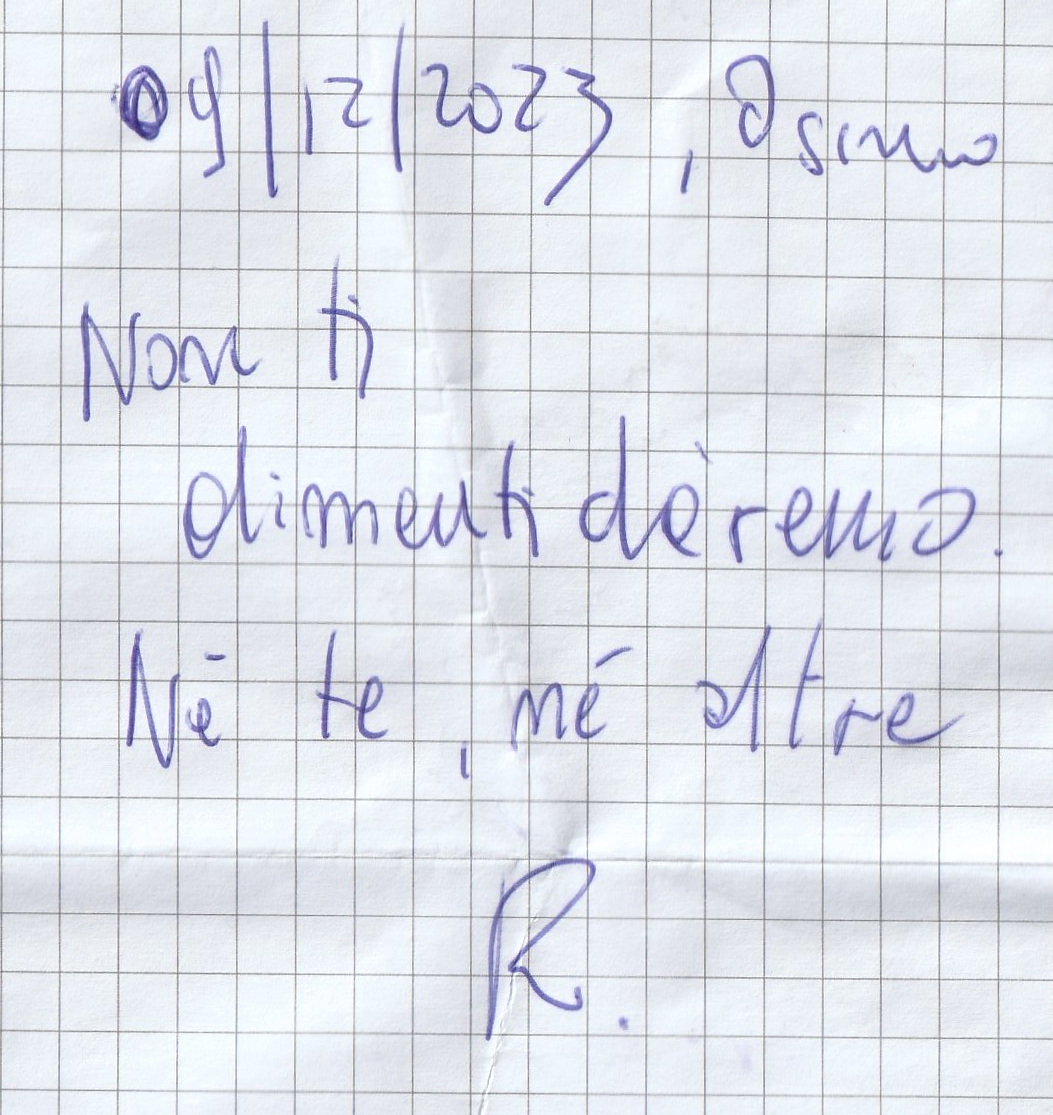 09/12/2023, Osimo
Non ti
dimentidèremo.
Nē te, né altre
R.